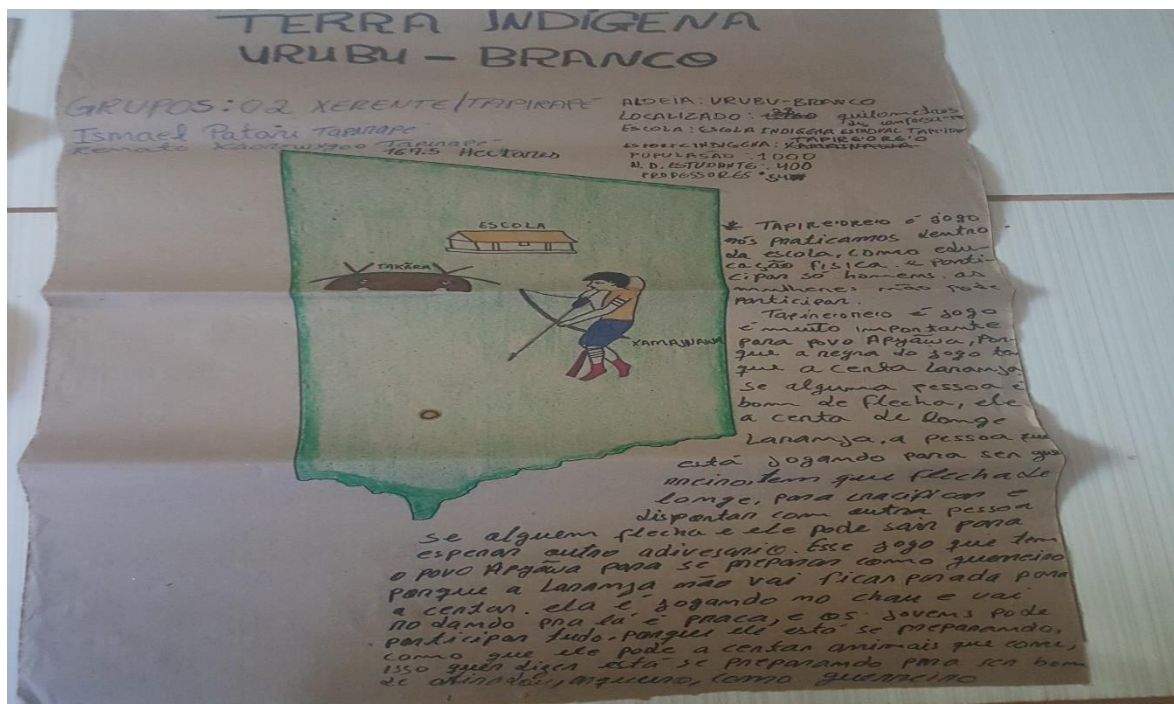 TERRA INDÍGENA
URUBU - BRANCO
GRUPOS: 02 XERENTE/TAPIRAPÉ
Ismael Tapirapé
Tapirapé
167.5 Hectares
ALDEIA: URUBU-BRANCO
LOCALIZADO: quilometros
ESCOLA: ESCOLA INDÍGENA ESTADUAL
TAPIREOREO
POPULASÃO: 1000
N. D. ESTUDANTE: 400
PROFESSORES:
ESCOLA
TAKÃRA
XAMAJNAWA
* TAPIREOREO é jogo
nós praticamos dentro
da escola, como edu-
cação física. e parti-
cipar só homens. as
mulheres não pode
participar.
Tapireoreio é jogo
é muito importante
para povo Apyãwa, por-
que a regra do jogo
que a certa laranja.
se alguma pessoa é
bom de flecha, ele
a certa de longe
laranja. a pessoa que
está jogando para ser gue
rreiro, tem que flecha de
longe, para cracificar e
disportar com outra pessoa
se alguem flecha e ele pode sair para
esperar outro adivesario. Esse jogo que tem
o povo Apyãwa para se preparar como guerreiro
porque a laranja não vai ficar parada para
a certar. ela é jogando no chau e vai
rodando pra lá é praca, e os jovens pode
participar tudo. porque ele está se preparando,
como que ele pode a certar animais que come,
isso quer dizer está se preparando para ser bom
de arqueiro, como guerreiro